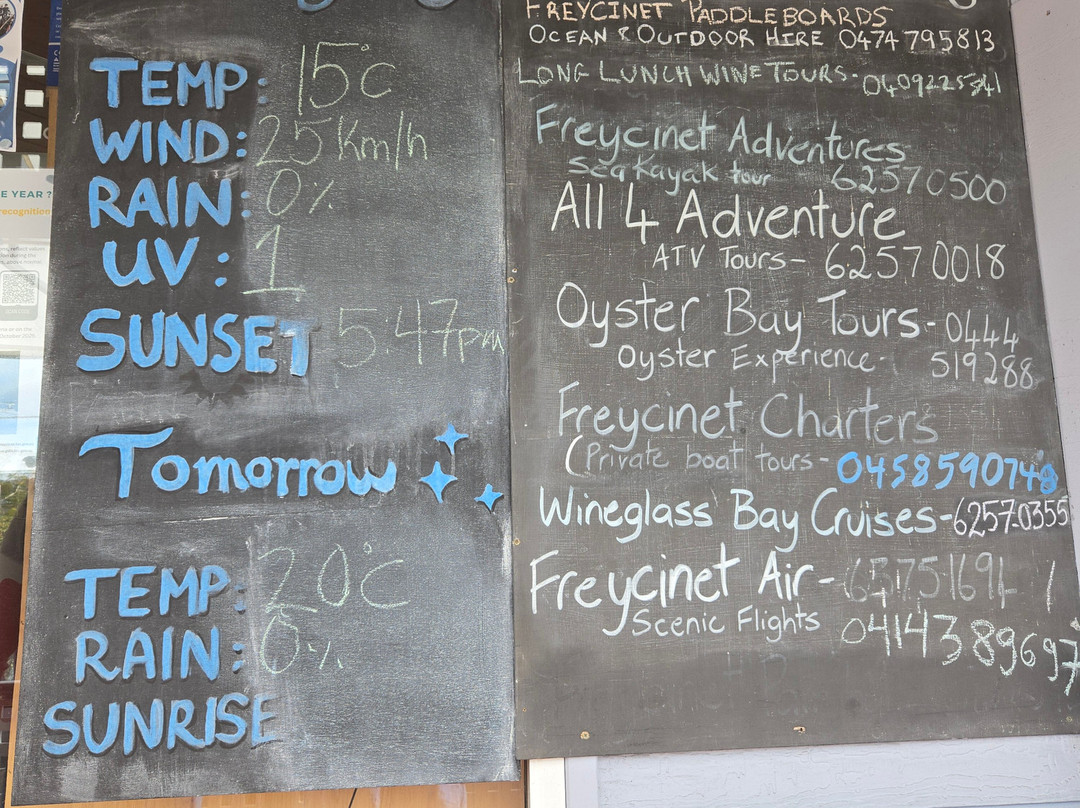 TEMP: 15°C
WIND: 25 km/h
RAIN: 0%
UV: 1
SUNSET 5:47pm
Tomorrow
TEMP: 20°C
RAIN: 0%
SUNRISE
FREYCINET PADDLEBOARDS
OCEAN & OUTDOOR HIRE 0474 795813
LONG LUNCH WINE TOURS - 0409225841
Freycinet Adventures
Sea Kayak tour 62570500
All 4 Adventure
ATV Tours - 62570018
Oyster Bay Tours - 0444
Oyster Experience 519288
Freycinet Charters
(Private boat tours - 0458590748
Wineglass Bay Cruises - 6257-0355
Freycinet Air - 63751694 /
Scenic Flights 0414389697
E YEAR ?
recognition